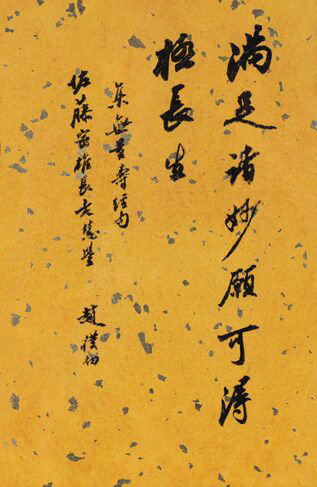 滿足諸妙願可得
極長生
集無量壽經句
佐藤密雄長老慧鑒
趙樸初